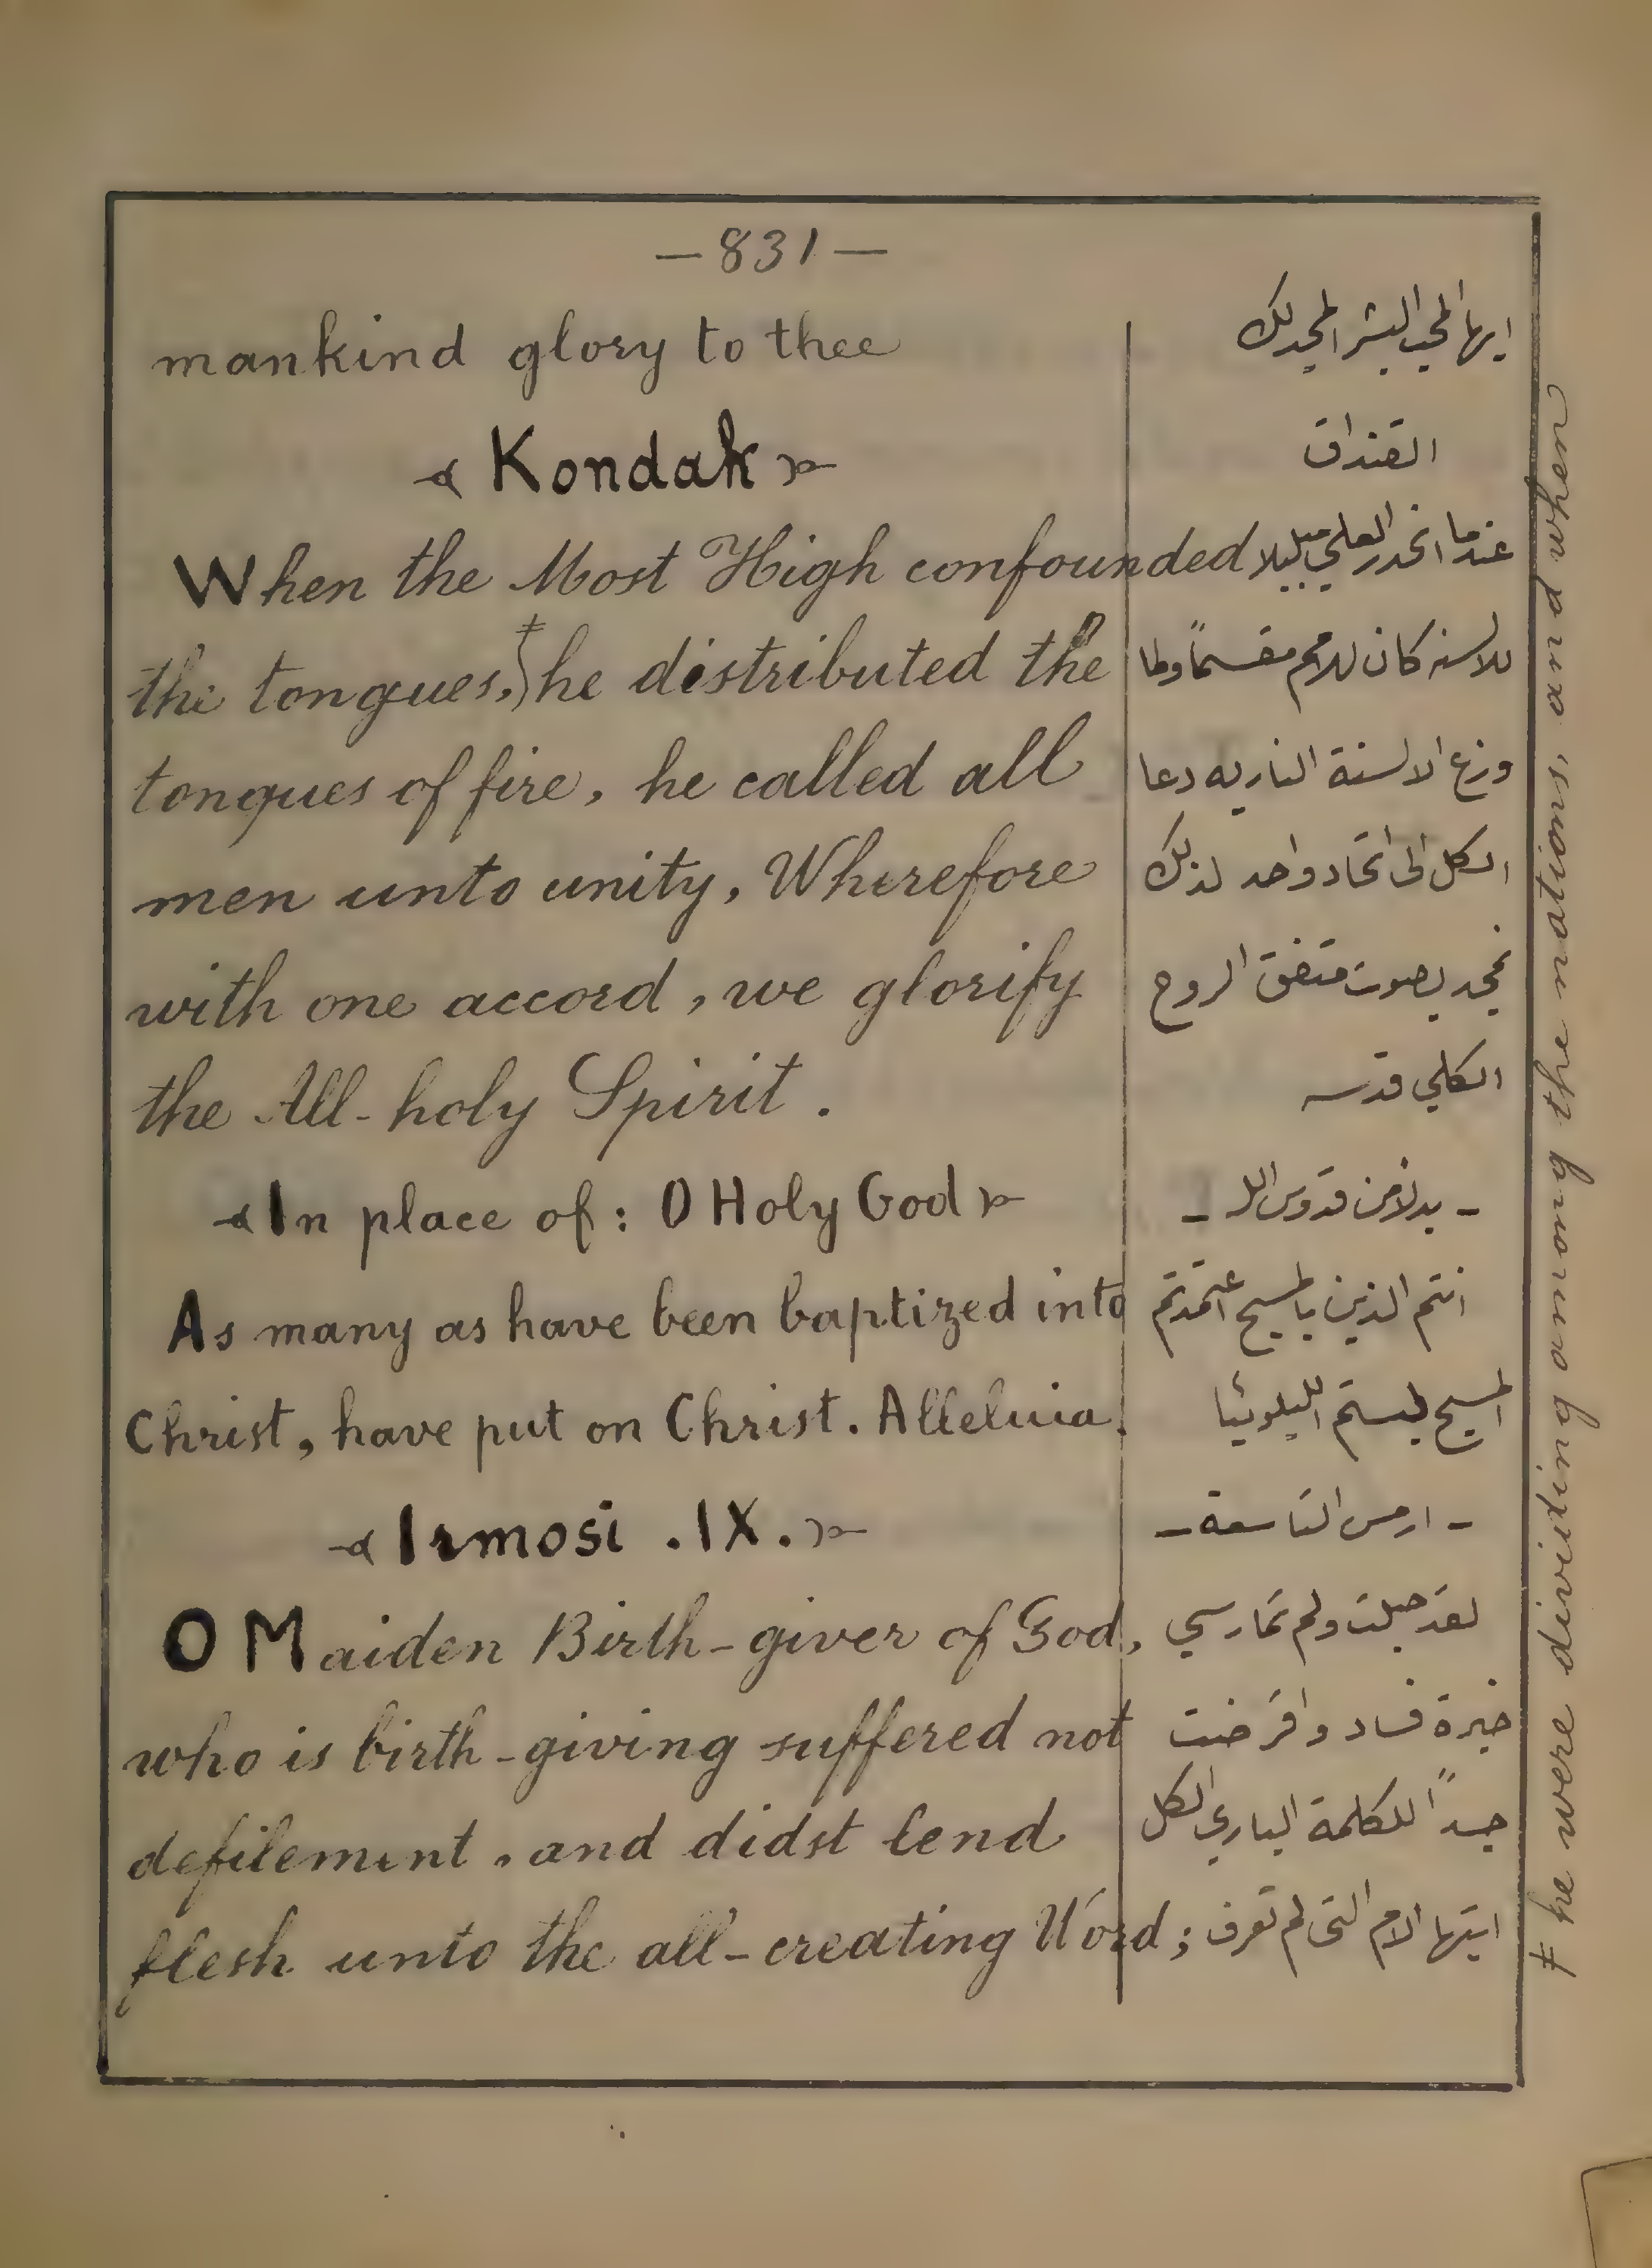 —831—
mankind glory to thee
Kondak
When the Most High confounded
the tongues,ǂ he distributed the
tongues of fire, he called all
men unto unity, Wherefore
with one accord, we glorify
the All-holy Spirit.
In place of: O Holy God
As many as have been baptized into
Christ, have put on Christ. Alleluia.
Irmosi .IX.
O Maiden Birth-giver of God,
who is birth-giving suffered not
defilement, and didst lend
flesh unto the all-creating Word;
ايها المحب البشر المجد لك
القنداق
عندما انحدر العلي مبلبلا
للالسنه كان للامم مقسماً ولما
وزع الالسنة الناريه دعا
الكل الى اتحاد واحد لذلك
نمجد بصوت متفق الروح
الكلي قدسه
- بدلا من قدوس الله -
انتم الذين بالمسيح اعتمدتم
المسيح لبستم الليلوييا
- ارمس التاسعة -
لقد حبلت ولم تمارسي
خبرة فساد واقرضت
جسداً للكلمة الباري الكل
ايتها الام التي لم تعرف
ǂ he were dividing among the nations, and when